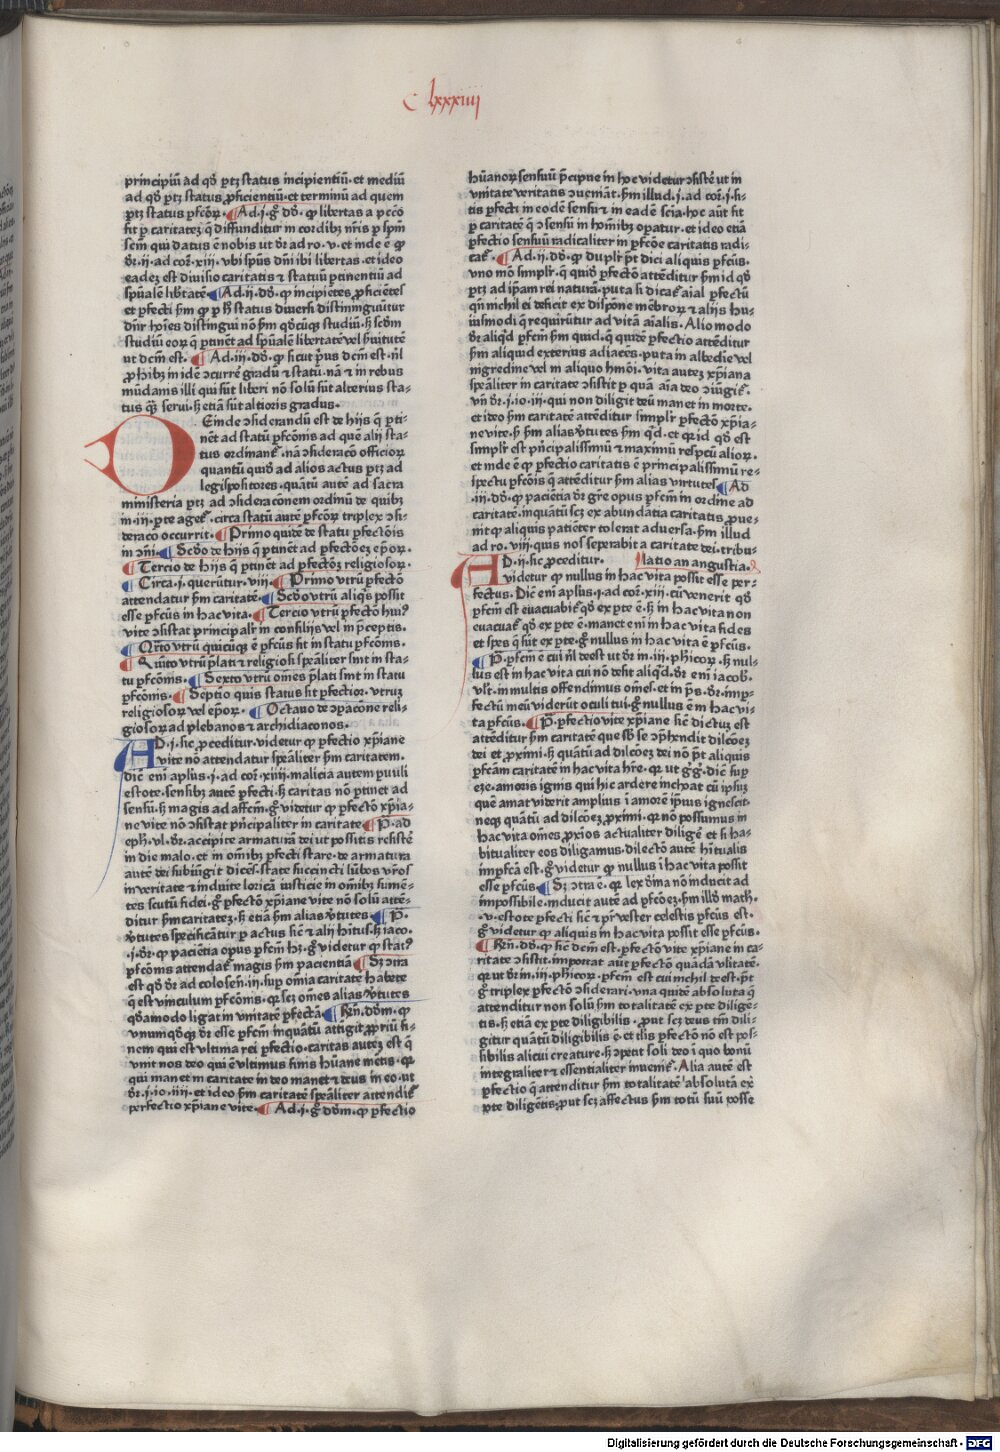 C lxxxiiij
principiū ad qđ ptʒ status incipientiū · et mediū
ad qđ ptʒ status ꝓficientiū · et terminū ad quem
ptʒ status ꝑfcōꝝ · ¶ Ad · j · gͦ dđ · ꝙ libertas a pccō
fit ꝑ caritateʒ q̄ diffunditur in cordibꝫ nr̄is ꝑ spm̄
scm̄ qui datus ē nobis ut dr̄ ad ro · v · et inde ē ꝙ
dr̄ · ii · ad cor̄ · xii · vbi spūs dn̄i ibi libertas · et ideo
eadeʒ est diuisio caritatis ⁊ statuū ꝑtinentiū ad
spūalē lib̄tatē ¶ Ad · ii · dđ · ꝙ incipiētes ꝓficiētes
et ꝑfecti sm̄ ꝙ ꝑ hͦ status diuersi distinguūtur
dn̄r hoīes distingui nō sm̄ qđcūqꝫ studiū · sꝫ scđm
studiū eoꝝ q̄ ꝑtinēt ad spūalē libertatē vel s̄uitutē
ut dcm̄ est · ¶ Ad · iii · dđ · ꝙ sicut p̄us dcm̄ est · nl̄
ꝓhibꝫ in idē ↄcurrē gradū ⁊ statū · nā ⁊ in rebus
mūdanis illi qui sūt liberi nō solū sūt alterius sta-
tus qꝫ serui · sꝫ etiā sūt altioris gradus ·
DEinde ↄsiderandū est de hijs q̄ ꝑti-
nēt ad statū ꝑfcōnis ad quē alij sta-
tus ordinant᷑ · nā ↄsideracō officioꝝ
quantū quiđ ad alios actus ptʒ ad
legispositores · quātū autē ad sacra
ministeria ptʒ ad ↄsideracōnem ordinū de quibꝫ
in · iii · ꝑte aget᷑ · circa statū autē ꝑfcōꝝ triplex ↄsi-
deraco occurrit · ¶ Primo quidē de statu ꝑfectōis
in ↄni · ¶ Scđo de hijs q̄ ꝑtinēt ad ꝑfectōeʒ ep̄oꝝ ·
¶ Tercio de hijs q̄ ꝑtinēt ad ꝑfectōʒ religiosoꝝ ·
¶ Circa · j · querūtur · viii · ¶ Primo vtrū ꝑfectō
attendatur sm̄ caritatē · ¶ Scđo vtrū aliqs possit
esse ꝑfcūs in hac vita · ¶ Tercio vtrū ꝑfectō huiꝰ
vite ↄsistat principalr̄ in consilijs vel in p̄ceptis ·
¶ Qr̄to vtrū quicūqꝫ ē ꝑfcūs sit in statu ꝑfcōnis ·
¶ Quīto vtrū p̄lati ⁊ religiosi spēaliter sint in sta-
tu ꝑfcōnis · ¶ Sexto vtrū om̄es p̄lati sint in statu
ꝑfcōnis · ¶ Septīo quis status sit ꝑfectior · vtruʒ
religiosoꝝ vel ep̄oꝝ · ¶ Octauo de ↄpacōne reli-
giosoꝝ ad plebanos ⁊ archidiaconos ·
AD · j · sic ꝓceditur · videtur ꝙ ꝑfectio xp̄iane
vite nō attendatur spēaliter sm̄ caritatem ·
dic̄ eni aplus · j · ad cor̄ · xiiii · malicia autem puuli
estote · sensibꝫ autē ꝑfecti · sꝫ caritas nō ꝑtinet ad
sensū · sꝫ magis ad affcm̄ · gͦ videtur ꝙ ꝑfectō xp̄ia-
ne vite nō ↄsistat pn̄cipaliter in caritate ¶ P̄ · ad
eph̄ · vl · dr̄ · accipite armaturā dei ut possitis resistē
in die malo · et in om̄ibꝫ ꝑfecti stare · de armatura
autē dei subiūgit dicēs · state succincti lūbos vr̄os
in veritate ⁊ induite loricā iusticie in om̄ibꝫ sumē-
tes scutū fidei · gͦ ꝑfectō xp̄iane vite nō solū attē-
ditur sm̄ caritateʒ · sꝫ etiā sm̄ alias v̄tutes ¶ P̄ ·
v̄tutes specificātur ꝑ actus sic̄ ⁊ alij hītus · sꝫ iaco ·
· j · dr̄ · ꝙ paciētia opus ꝑfcm̄ hꝫ · gͦ videtur ꝙ statꝰ
ꝑfcōnis attendat᷑ magis sm̄ pacientiā ¶ Sꝫ ↄtra
est qđ dr̄ ad colosen̄ · iii · sup om̄ia caritatē habete
q̄ est vinculum ꝑfcōnis · qꝛ scʒ om̄es alias v̄tutes
qđāmodo ligat in vnitatē ꝑfectā ¶ Rn̄ · dđm · ꝙ
vnumqđqꝫ dr̄ esse ꝑfcm̄ inquātū attigit ꝓpriū fi-
nem qui est vltima rei ꝑfectio · caritas auteʒ est q̄
vnit nos deo qui ē vltimus finis hūane mētis · qꝛ
qui manet in caritate in deo manet ⁊ deus in eo · ut
dr̄ · j · io · iiii · et ideo sm̄ caritatē spēaliter attendit᷑
perfectio xp̄iane vite · ¶ Ad · j · gͦ dđm · ꝙ ꝑfectio
hūanoꝝ sensuū p̄cipue in hoc videtur ↄsistē ut in
vnitate veritatis ↄueniāt · sm̄ illud · j · ad cor̄ · j · si-
tis ꝑfecti in eodē sensu ⁊ in eadē scīa · hoc aūt fit
ꝑ caritatē q̄ ↄsensū in hoīnibꝫ oꝑatur · et ideo etiā
ꝑfectio sensuū radicaliter in ꝑfcōe caritatis radi-
cat᷑ · ¶ Ad · ii · dđ · ꝙ duplr̄ pt̄ dici aliquis ꝑfcūs ·
vno mō simplr̄ · q̄ quiđ ꝑfectō attēditur sm̄ id qđ
ptʒ ad ip̄am rei naturā · puta si dicat᷑ aīal ꝑfectū
qn̄ nichil ei deficit ex dispōne mēbroꝝ ⁊ alijs hu-
iusmodi q̄ requirūtur ad vitā aīalis · Alio modo
dr̄ aliqđ ꝑfcm̄ sm̄ quid · q̄ quidē ꝑfectio attēditur
sm̄ aliquid exterius adiacēs · puta in albedīe vel
nigredine vel in aliquo hmōi · vita auteʒ xp̄iana
spēaliter in caritate ↄsistit ꝑ quā aīa deo ↄiūgit᷑ ·
vn̄ dr̄ · j · io · iii · qui non diligit deū manet in morte ·
et ideo sm̄ caritatē attēditur simplr̄ ꝑfectō xp̄ia-
ne vite · sꝫ sm̄ alias v̄tutes sm̄ qđ · et qꝛ id qđ est
simplr̄ est pn̄cipalissimū ⁊ maximū respcū alioꝝ ·
et inde ē ꝙ ꝑfectio caritatis ē principalissimū re-
spectu ꝑfcōis q̄ attēditur sm̄ alias virtutes ¶ Ad
· iii · dđ · ꝙ paciētia dr̄ hr̄e opus ꝑfcm̄ in ordine ad
caritatē · inquātū scʒ ex abundātia caritatis ꝓue-
nit ꝙ aliquis patiēter tolerat aduersa · sm̄ illud
ad ro · viii · quis nos seperabit a caritate dei · tribu-
AD · ii · sic ꝓceditur · latio an angustia ·
videtur ꝙ nullus in hac vita possit esse per-
fectus · Dic̄ eni aplus · j · ad cor̄ · xiii · cū venerit qđ
ꝑfcm̄ est euacuabit᷑ qđ ex ꝑte ē · sꝫ in hac vita non
euacuat᷑ qđ ex ꝑte ē · manēt eni in hac vita fides
et spes q̄ sūt ex ꝑte · gͦ nullus in hac vita ē ꝑfcūs ·
¶ P̄ · ꝑfcm̄ ē cui nl̄ deest ut dr̄ in · iii · ph̄icoꝝ · sꝫ nul-
lus est in hac vita cui nō desit aliqđ · dr̄ eni iacob ·
vlt̄ · in multis offendimus om̄es · et in ps̄ · dr̄ · imp-
fectū meū viderūt oculi tui · gͦ nullus ē in hac vi-
ta ꝑfcūs · ¶ P̄ · ꝑfectio vite xp̄iane sic̄ dictuʒ est
attēditur sm̄ caritatē que sb̄ se ↄp̄hendit dilcōeʒ
dei et ꝓximi · sꝫ quātū ad dilcōeʒ dei nō pt̄ aliquis
ꝑfcām caritatē in hac vita hr̄e · qꝛ ut gͦgͦ · dic̄ sup
eʒe · amoris ignis qui hic ardere inchoat cū ip̄suʒ
quē amat viderit amplius ī amorē ip̄ius ignescit ·
neqꝫ quātū ad dilcōeʒ ꝓximi · qꝛ nō possumus in
hac vita om̄es ꝓxios actualiter diligē et si ha-
bitualiter eos diligamus · dilectō autē hītualis
imꝑfcā est · gͦ videtur ꝙ nullus ī hac vita possit
esse ꝑfcūs · ¶ Sꝫ ↄtra ē · qꝛ lex dīna nō inducit ad
īmpossibile · inducit autē ad ꝑfcōeʒ · sm̄ illđ math̄ ·
· v · estote ꝑfecti sic̄ ⁊ pr̄ vester celestis ꝑfcūs est ·
gͦ videtur ꝙ aliquis in hac vita possit esse ꝑfcūs ·
¶ Rn̄ · dđ · ꝙ sic̄ dcm̄ est · ꝑfectō vite xp̄iane in ca-
ritate ↄsistit · importat aūt ꝑfectō quādā vl̄itatē ·
qꝛ ut dr̄ in · iii · ph̄icoꝝ · ꝑfcm̄ est cui nichil deest · pt̄
gͦ triplex ꝑfectō ↄsiderari · vna quidē absoluta q̄
attenditur non solū sm̄ totalitatē ex ꝑte diligē-
tis · sꝫ etiā ex ꝑte diligibilis · ꝓut scʒ deus tm̄ dili-
gitur quātū diligibilis ē · et tl̄is ꝑfectō nō est pos-
sibilis alicui creature · sꝫ ↄpetit soli deo ī quo bonū
integraliter ⁊ essentialiter inuenit᷑ · Alia autē est
ꝑfectio q̄ attenditur sm̄ totalitatē absolutā ex
ꝑte diligētis · ꝓut scʒ affectus sm̄ totū suū posse
Digitalisierung gefördert durch die Deutsche Forschungsgemeinschaft - DFG